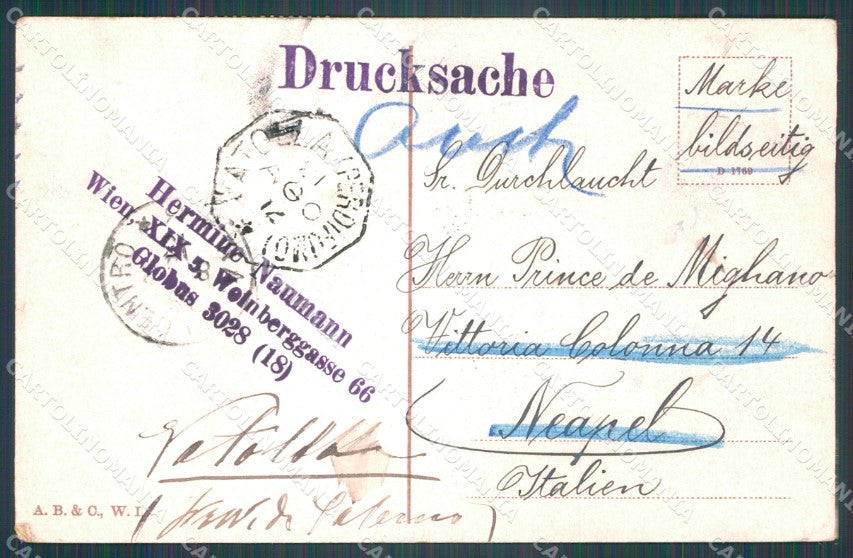 Drucksache
Marke
bildseitig
D 1769
Sr. Durchlaucht
Herrn Prince de Mighano
Vittoria Colonna 14
Neapel
Italien
Hermine Naumann
Wien, XIX 5, Weinberggasse 66
Globus 3028 (18)
VATOLLA (PERDIFUMO)
AGO
12
Vatolla
di Salerno
A. B. & C., W. I.
CARTOLINOMANIA